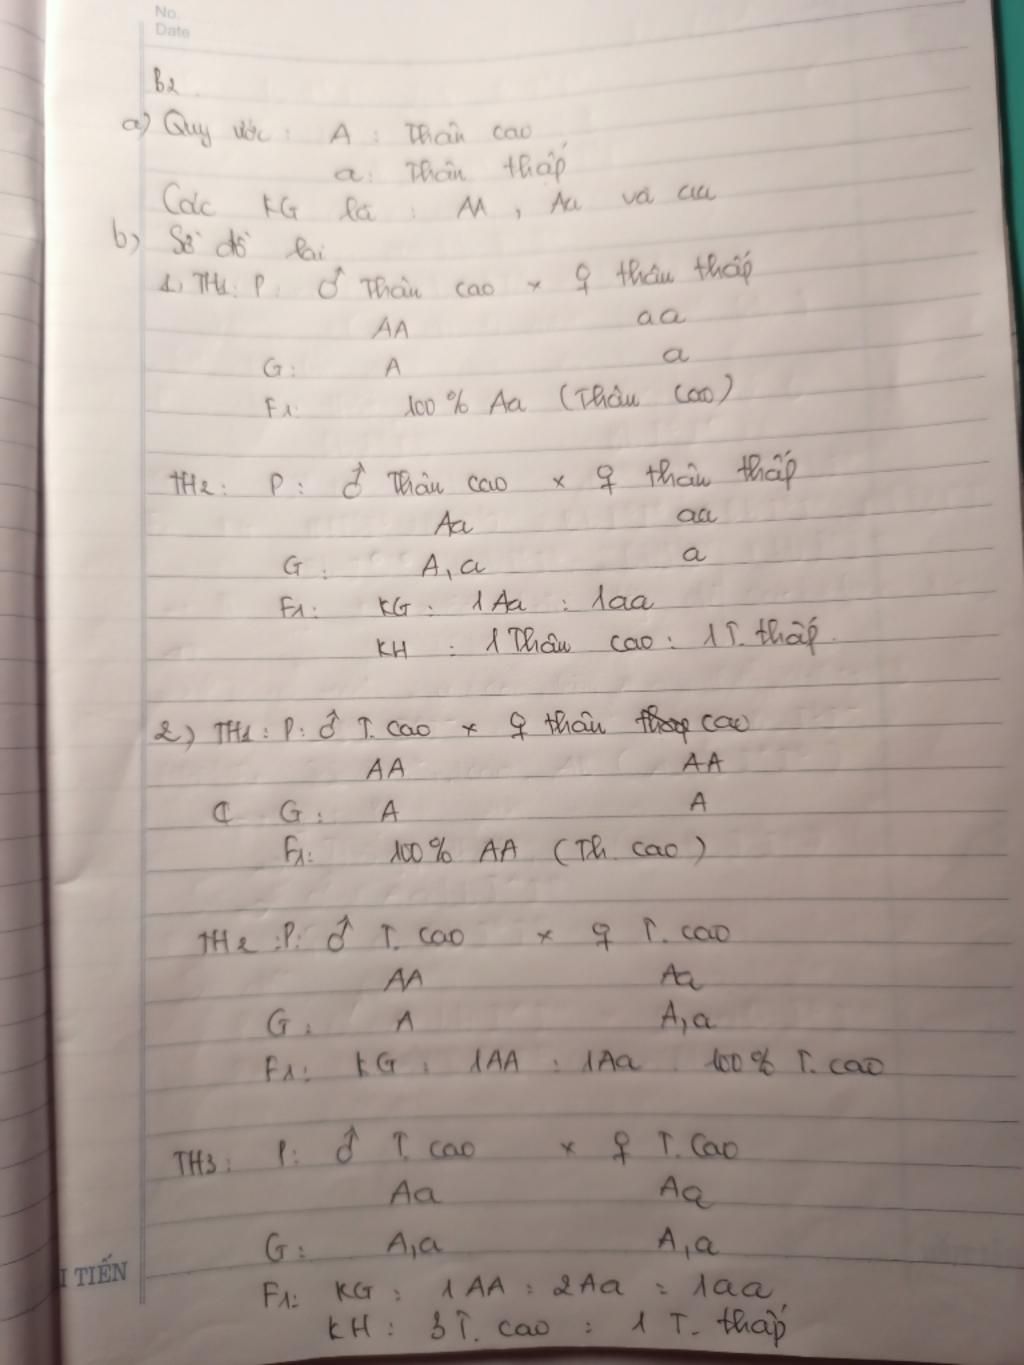 No.
Date
B2
a) Quy ước : A : Thân cao
a : Thân thấp
Các KG là : AA , Aa và aa
b) Sơ đồ lai
1, TH1 : P : ♂ Thân cao × ♀ thân thấp
AA aa
G : A a
F1: 100% Aa (Thân cao)
TH2 : P : ♂ Thân cao × ♀ thân thấp
Aa aa
G : A, a a
F1: KG : 1Aa : 1aa
KH : 1 Thân cao : 1 T. thấp
2) TH1 : P : ♂ T. cao × ♀ thân cao
AA AA
G : A A
F1: 100% AA (Th. cao)
TH2 : P : ♂ T. cao × ♀ T. cao
AA Aa
G : A A, a
F1: KG : 1AA : 1Aa 100% T. cao
TH3 : P : ♂ T. cao × ♀ T. cao
Aa Aa
G : A, a A, a
I TIẾN
F1: KG : 1AA : 2Aa : 1aa
KH : 3 T. cao : 1 T. thấp